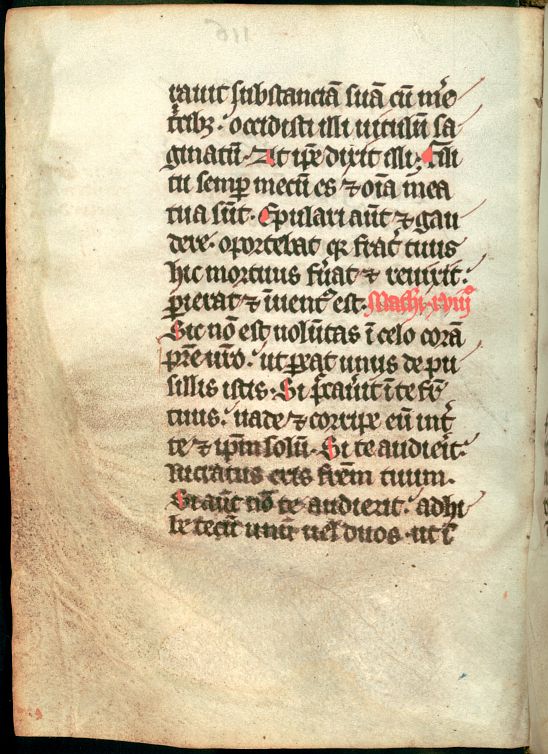 rauit substanciā suā cū m̄e
tͥcibꝫ · occidisti illi uitulū sa
ginatū · At ip̄e dixit illi · Fili
tu semꝑ mecū es ⁊ oīa mea
tua sūt · Epulari aūt ⁊ gau
dere · oportebat qꝛ frat̾ tuus
hic mortuus fūat ⁊ reuixit ·
ꝑierat ⁊ īuentꝰ est · Mathī · xviijͦ
Sic nō est uolūtas ī celo corā
pr̄e ur̄o · ut ꝑeat unus de pu
sillis istis · Si p̄cau̾it ī te fr̄
tuus · uade ⁊ corripe eū int̾
te ⁊ ip̄m solū · Si te audierit ·
lucratus eris fr̄em tuum ·
Si aūt nō te audierit · adhi
be tecū unū uel duos · ut ī